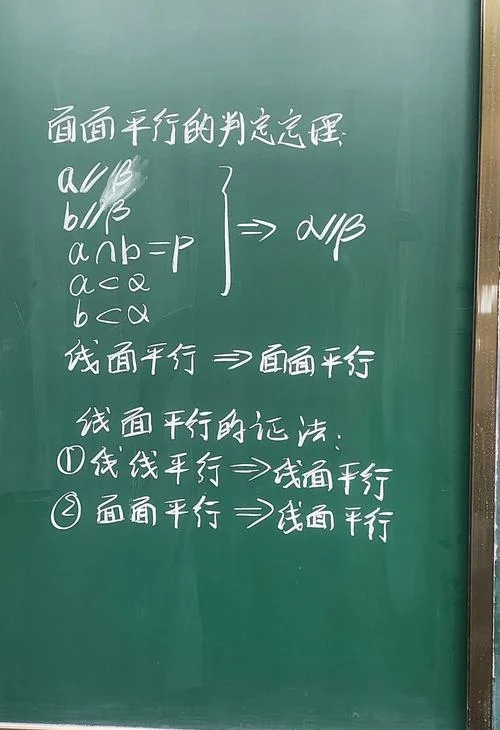 面面平行的判定定理:
a//β
b//β
a∩b=P
a⊂α
b⊂α
⇒ α//β
线面平行 ⇒ 面面平行
线面平行的证法:
①线线平行⇒线面平行
②面面平行⇒线面平行